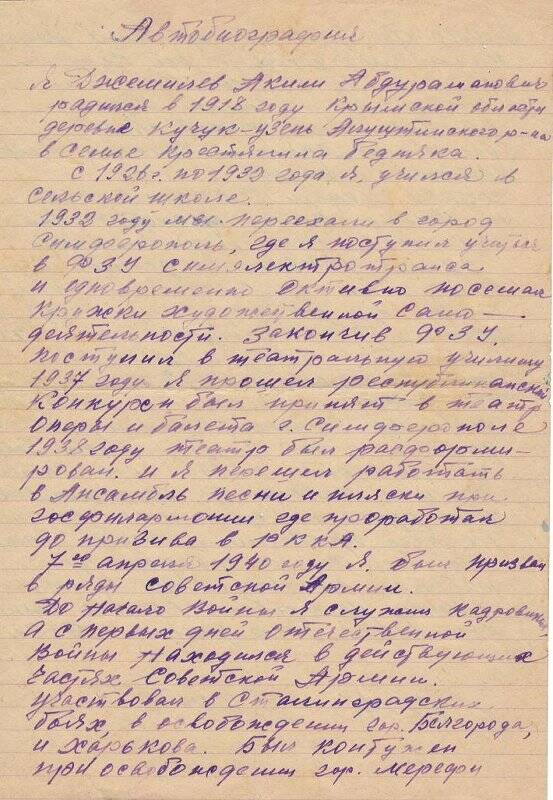 Автобиография
Я Джемилев Аким Абдураманович
радился в 1918 году Крымской области
деревне Кучук-узень Алуштинского р-на
в семье крестянина бедняка.
с 1926 г. по 1932 года я, учился в
сельской школе.
1932 году мы переехали в город
Симферополь, где я поступил учиться
в ФЗУ симэлектротранса
и одновременно активно посещал
кружки художественной само-
деятельности. Закончив ФЗУ.
поступил в театральную училищу
1937 году я прошел республиканский
конкурс и был принят в театр
оперы и балета г. Симферополе
1938 году театр был расформи-
рован. и я перешел работать
в Ансамбль песни и пляски при
госфилармонии где проработал
до призыва в РККА.
7го апреля 1940 году я. был призван
в ряды советской Армии.
До начало войны я служил кадровиком,
а с первых дней отечественной
войны находился в действующих
частях советской Армии.
участвовал в сталинградских
боях в освобождении гор. Белгорода,
и харькова. Был контужен
при освобождении гор. мерефи